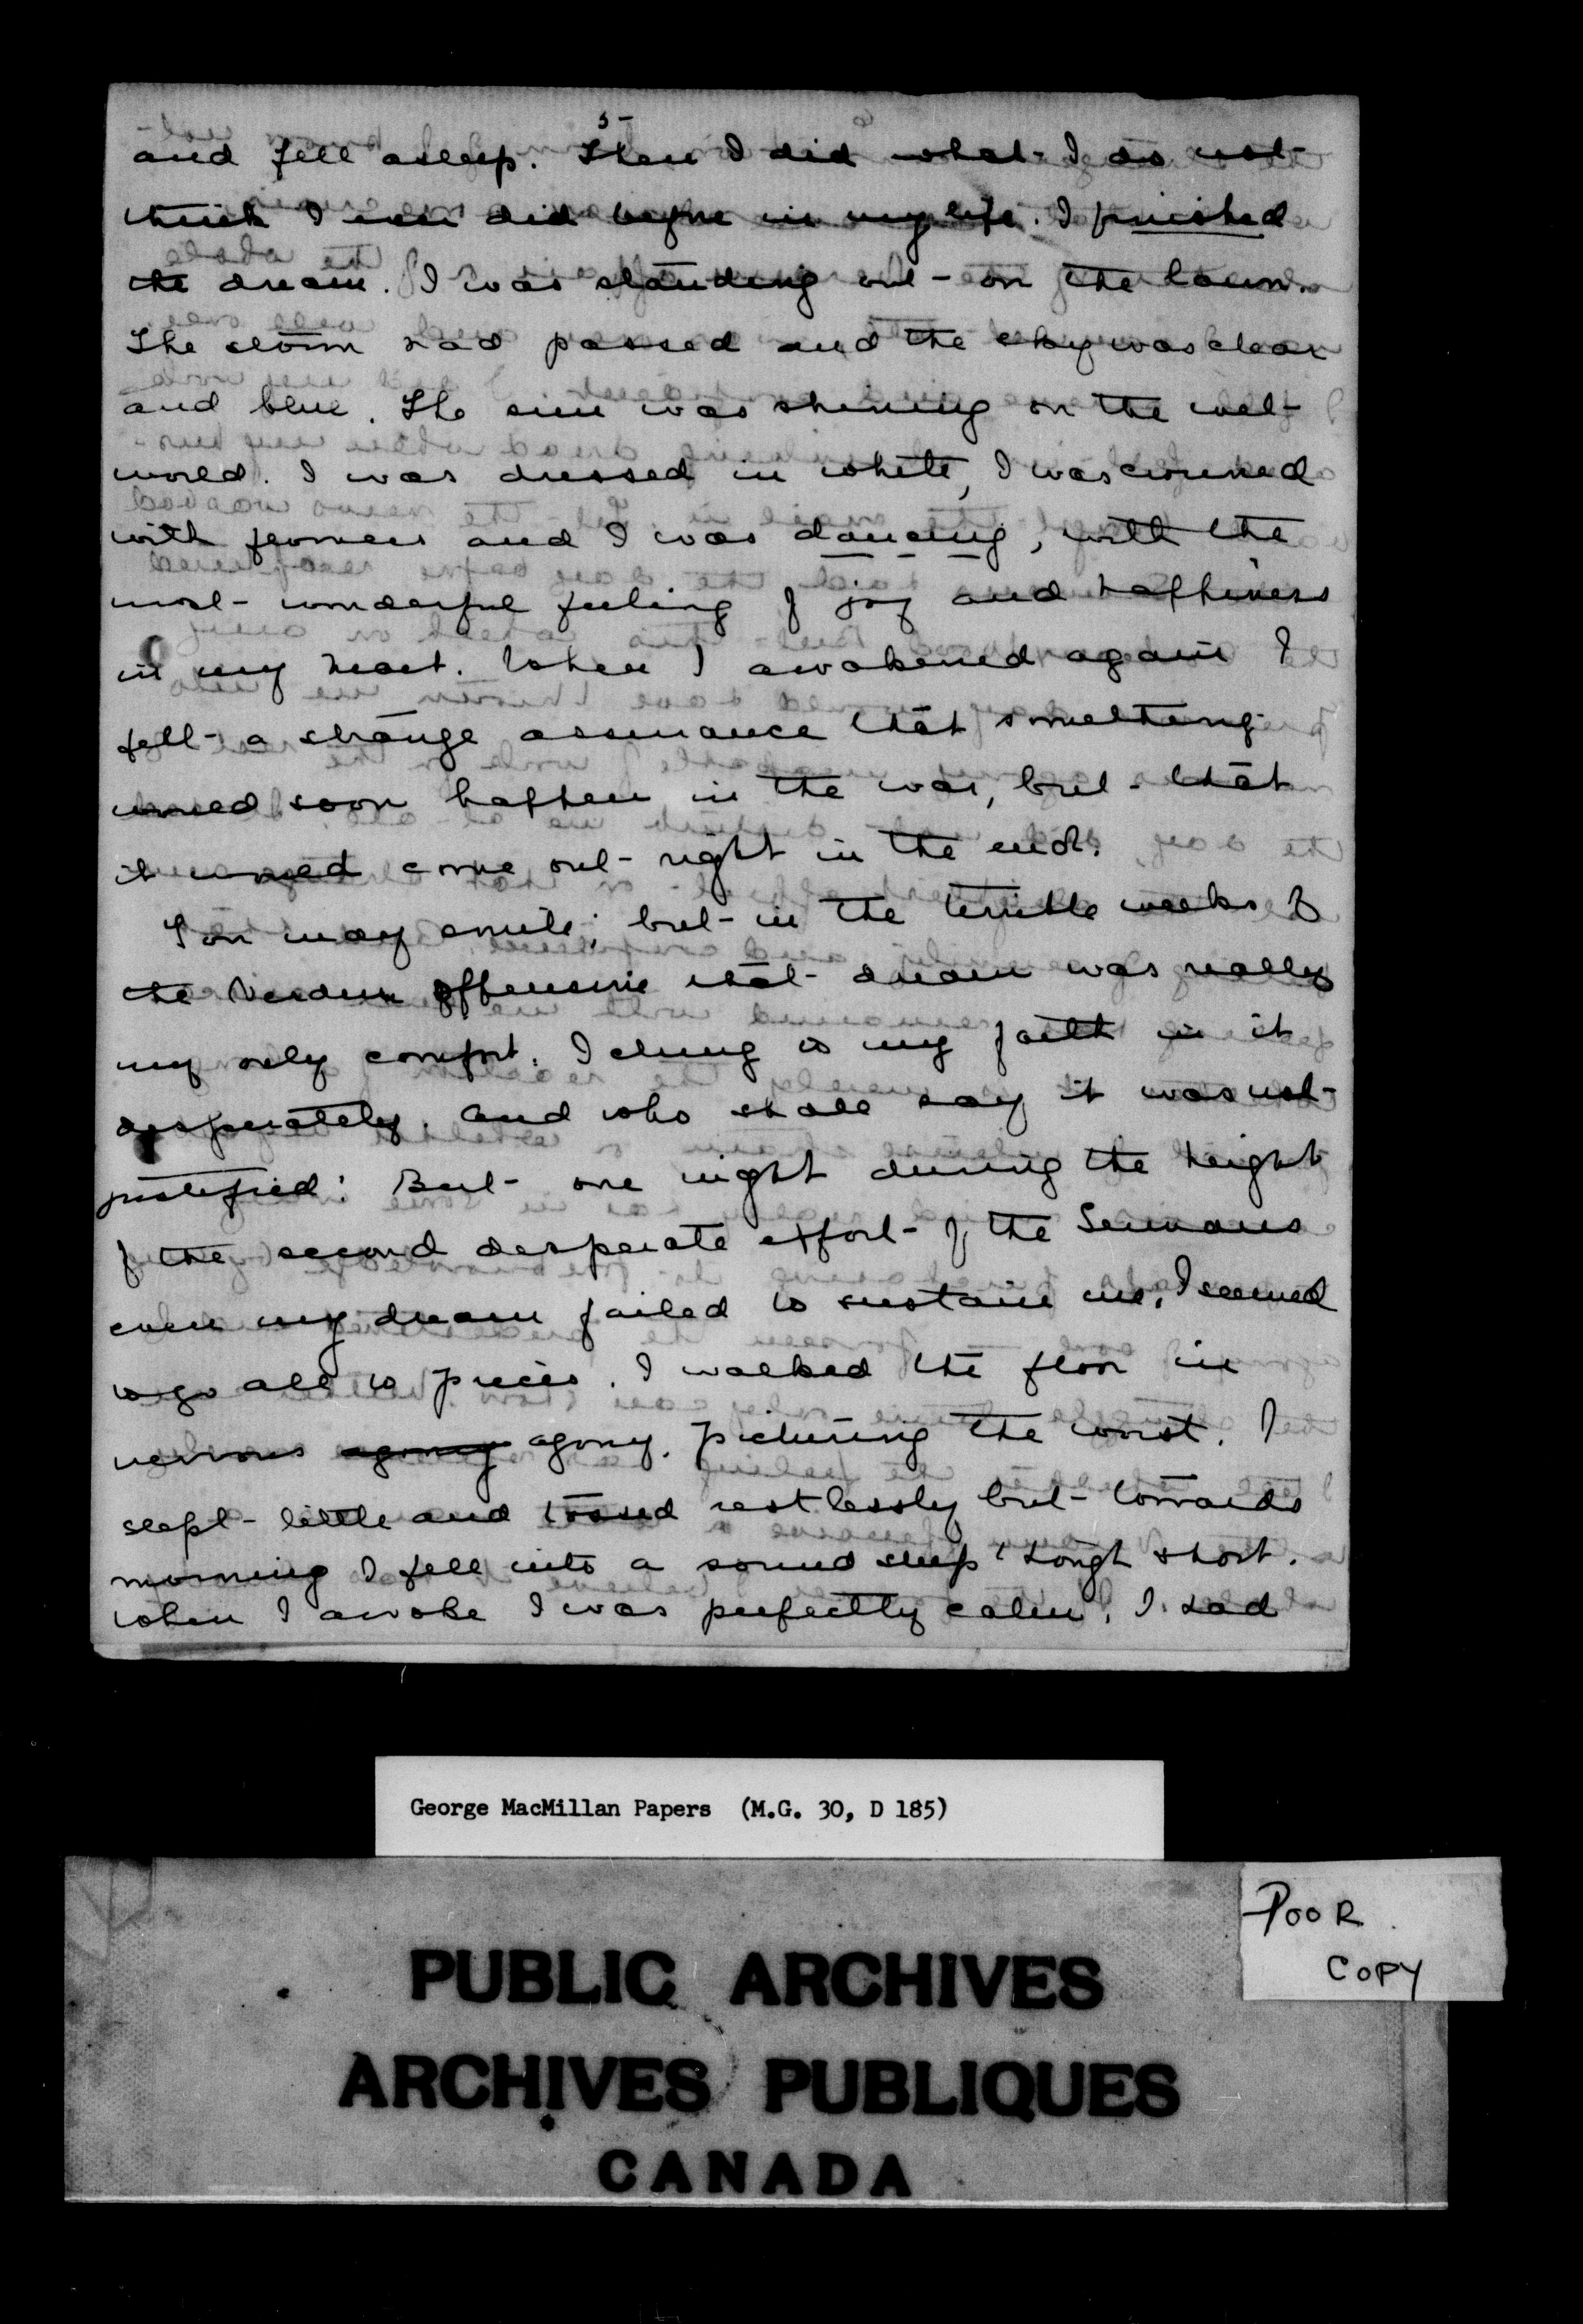 5-
and fell asleep. Then I did what I do not
think I ever did before in my life. I finished
the dream. I was standing out on the lawn.
The storm had passed and the sky was clear
and blue. The sun was shining on the wet
world. I was dressed in white, I was crowned
with flowers and I was dancing, with the
most wonderful feeling of joy and happiness
in my heart. When I awakened again I
felt a strange assurance that something
would soon happen in the war, but that
it would come out right in the end.
You may smile; but in the terrible weeks of
the Verdun offensive that dream was really
my only comfort. I clung to my faith in it
desperately. And who shall say it was not
justified! But one night during the height
of the second desperate effort of the Germans
even my dream failed to sustain me. I seemed
to go all to pieces. I walked the floor in
nervous agony agony. picturing the worst. I
slept little and tossed restlessly but towards
morning I fell into a sound sleep though short.
When I awoke I was perfectly calm. I had
George MacMillan Papers (M.G. 30, D 185)
POOR
COPY
PUBLIC ARCHIVES
ARCHIVES PUBLIQUES
CANADA